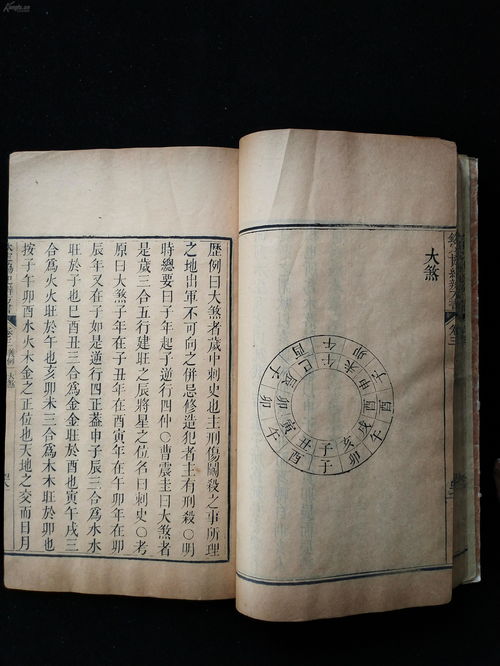 大煞
子丑寅卯辰巳午未申酉戌亥
子酉午卯子酉午卯子酉午卯
歷例曰大煞者歲中刺史也主刑傷鬭殺之事所理
之地出軍不可向之併忌修造犯者主有刑殺〇明
時總要曰子年起子逆行四仲〇曹震圭曰大煞者
是歲三合五行建旺之辰將星之位名曰刺史〇考
原曰大煞子年在子丑年在酉寅年在午卯年在卯
辰年又在子如是逆行四正葢申子辰三合爲水水
旺於子也巳酉丑三合爲金金旺於酉也寅午戌三
合爲火火旺於午也亥卯未三合爲木木旺於卯也
按子午卯酉水火木金之正位也天地之交而日月
大煞